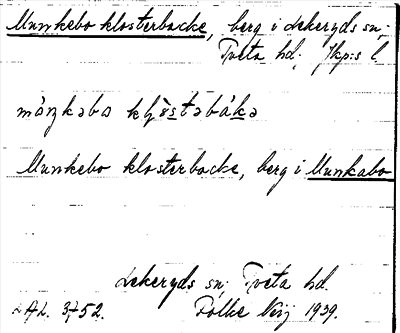 Munkebo klosterbacke, berg i Lekeryds sn;
Tveta hd; Jkp:s l.
måŋkəbo kljo̊stəbákə
Munkebo klosterbacke, berg i Munkabo
Lekeryds sn; Tveta hd.
LAL. 3752. Folke 1939.